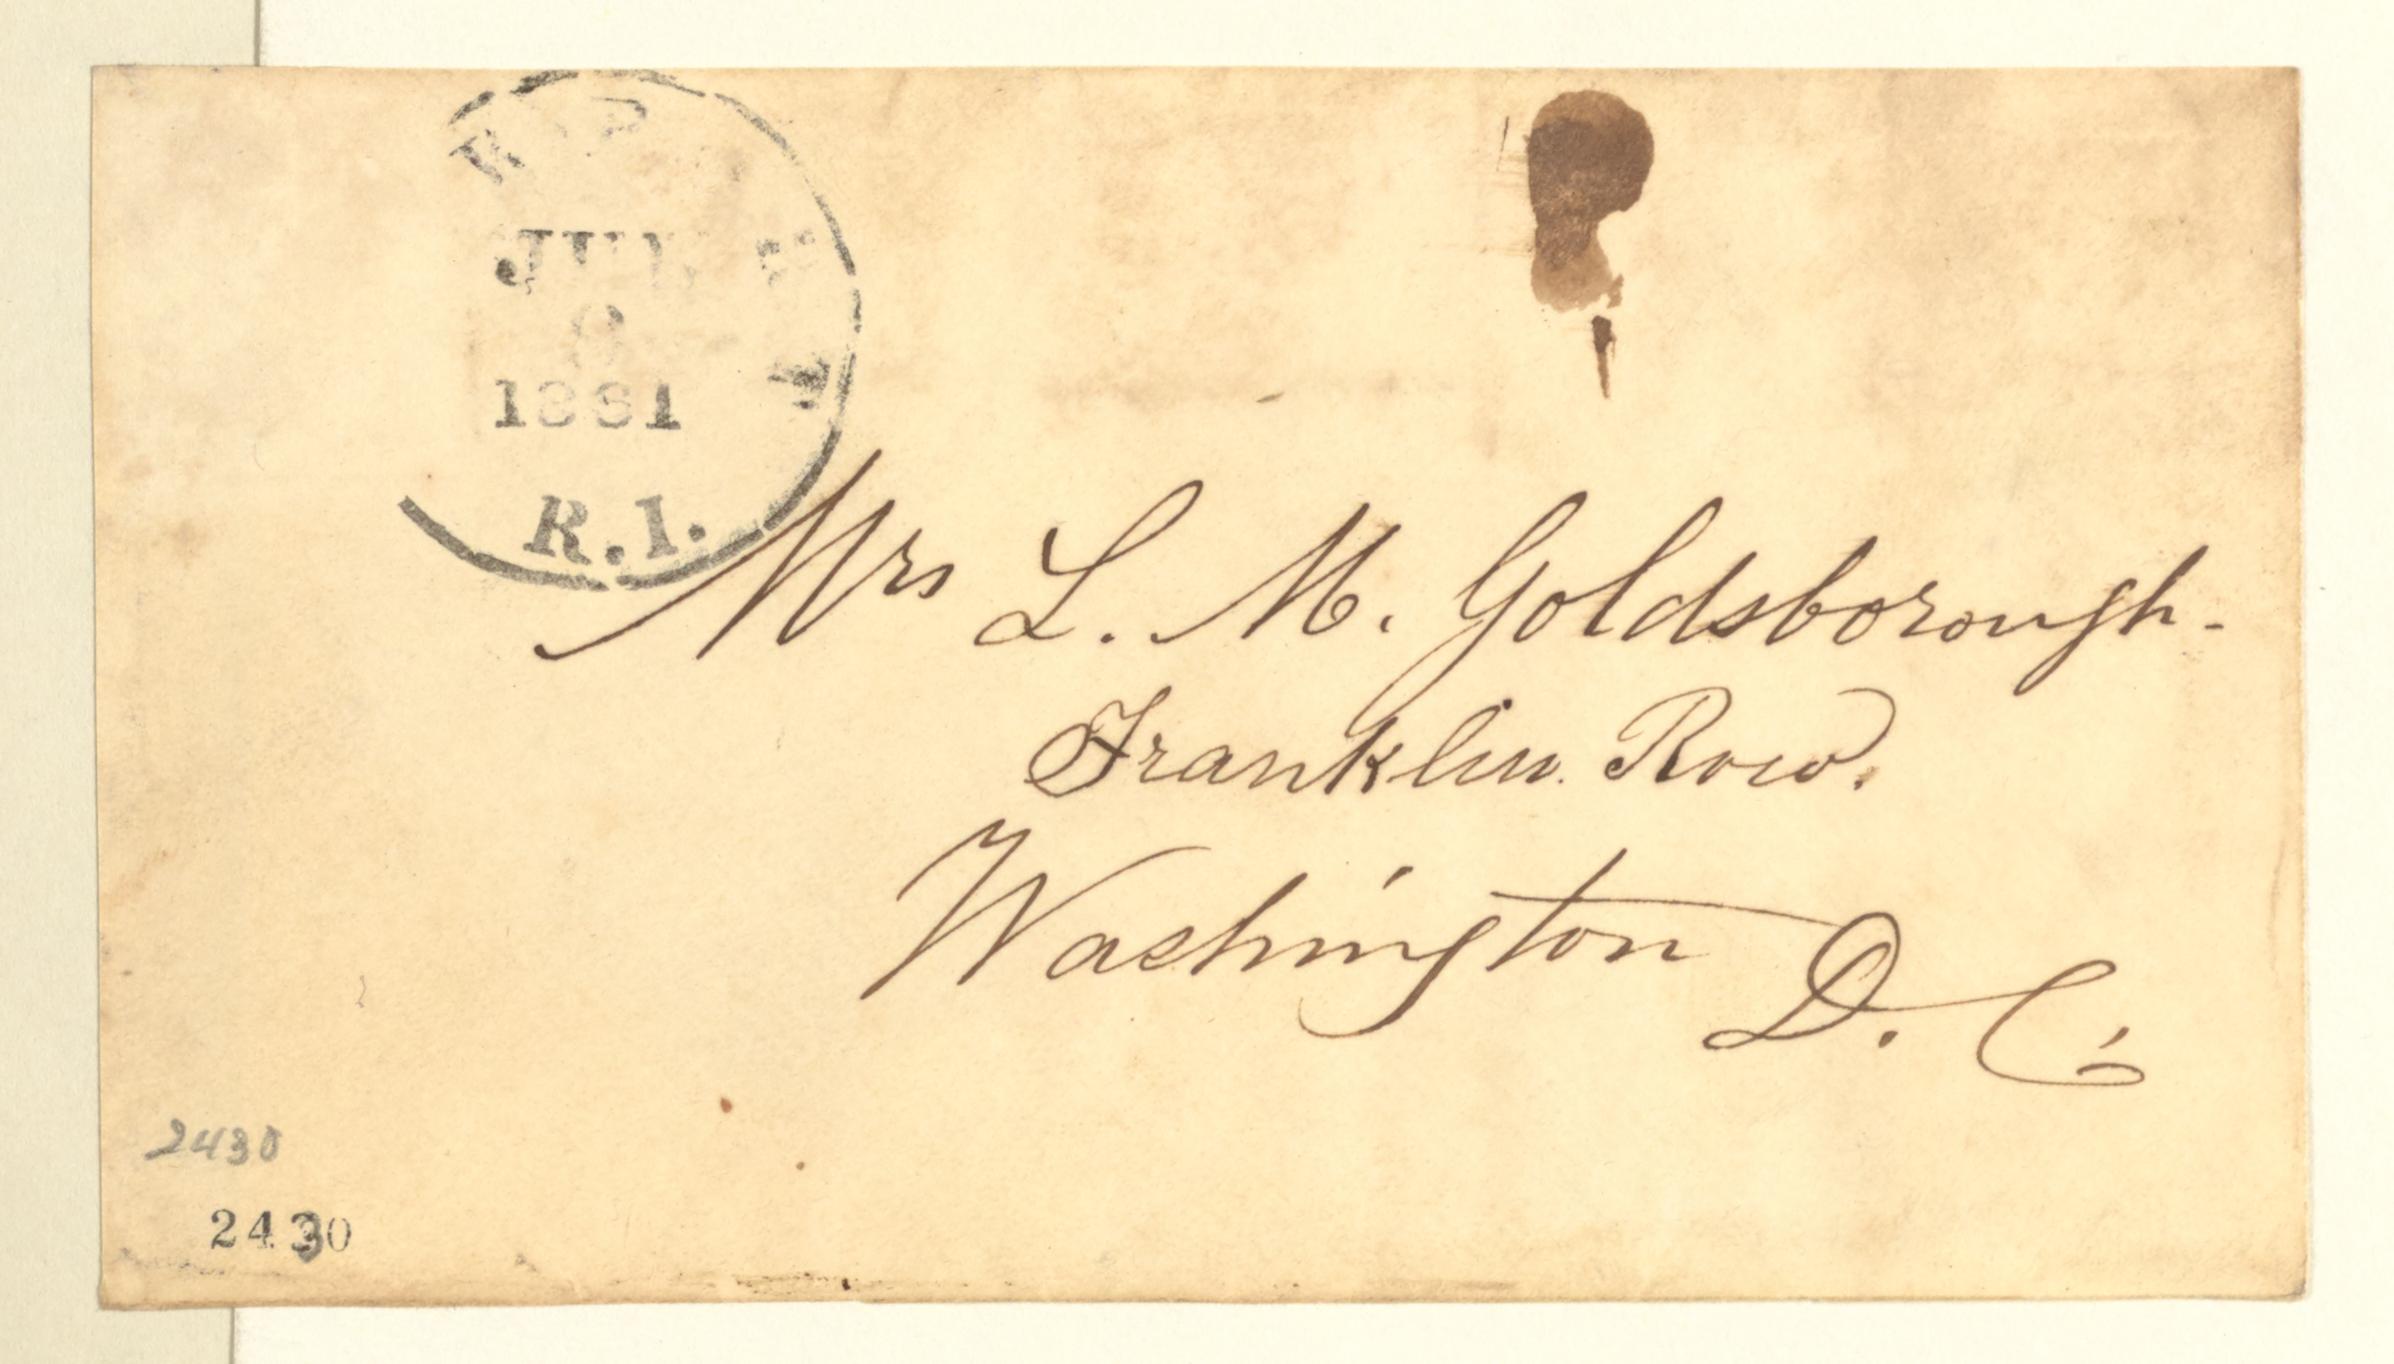 JUL
R.I.
Mrs L. M. Goldsborough.
Franklin Row.
Washington D. C.
2430
2430